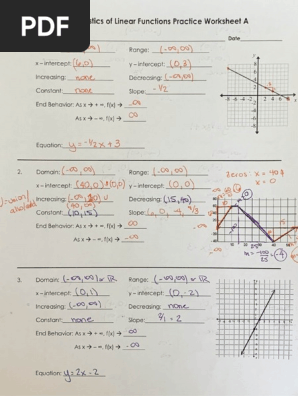 PDF
tics of Linear Functions Practice Worksheet A
Date
Range: (-∞,∞)
x – intercept: (6,0) y – intercept: (0,3)
Increasing: none Decreasing: (-∞,∞)
Constant: none Slope: -1/2
End Behavior: As x → + ∞, f(x) → -∞
As x → – ∞, f(x) → ∞
Equation: y = -1/2x + 3
2. Domain: (-∞,∞) Range: (-∞,∞)
x – intercept: (40,0) & (0,0) y – intercept: (0,0)
zeros: x = 40 &
x = 0
Increasing: Decreasing: (15,40)
Constant: (10,15) Slope:
End Behavior: As x → + ∞, f(x) → ∞
As x → – ∞, f(x) → -∞
3. Domain: (-∞,∞) or ℝ Range: (-∞,∞) or ℝ
x – intercept: (0,1) y – intercept: (0,-2)
Increasing: (-∞,∞) Decreasing: none
Constant: none Slope: 2/1 = 2
End Behavior: As x → + ∞, f(x) → ∞
As x → – ∞, f(x) → -∞
Equation: y = 2x - 2